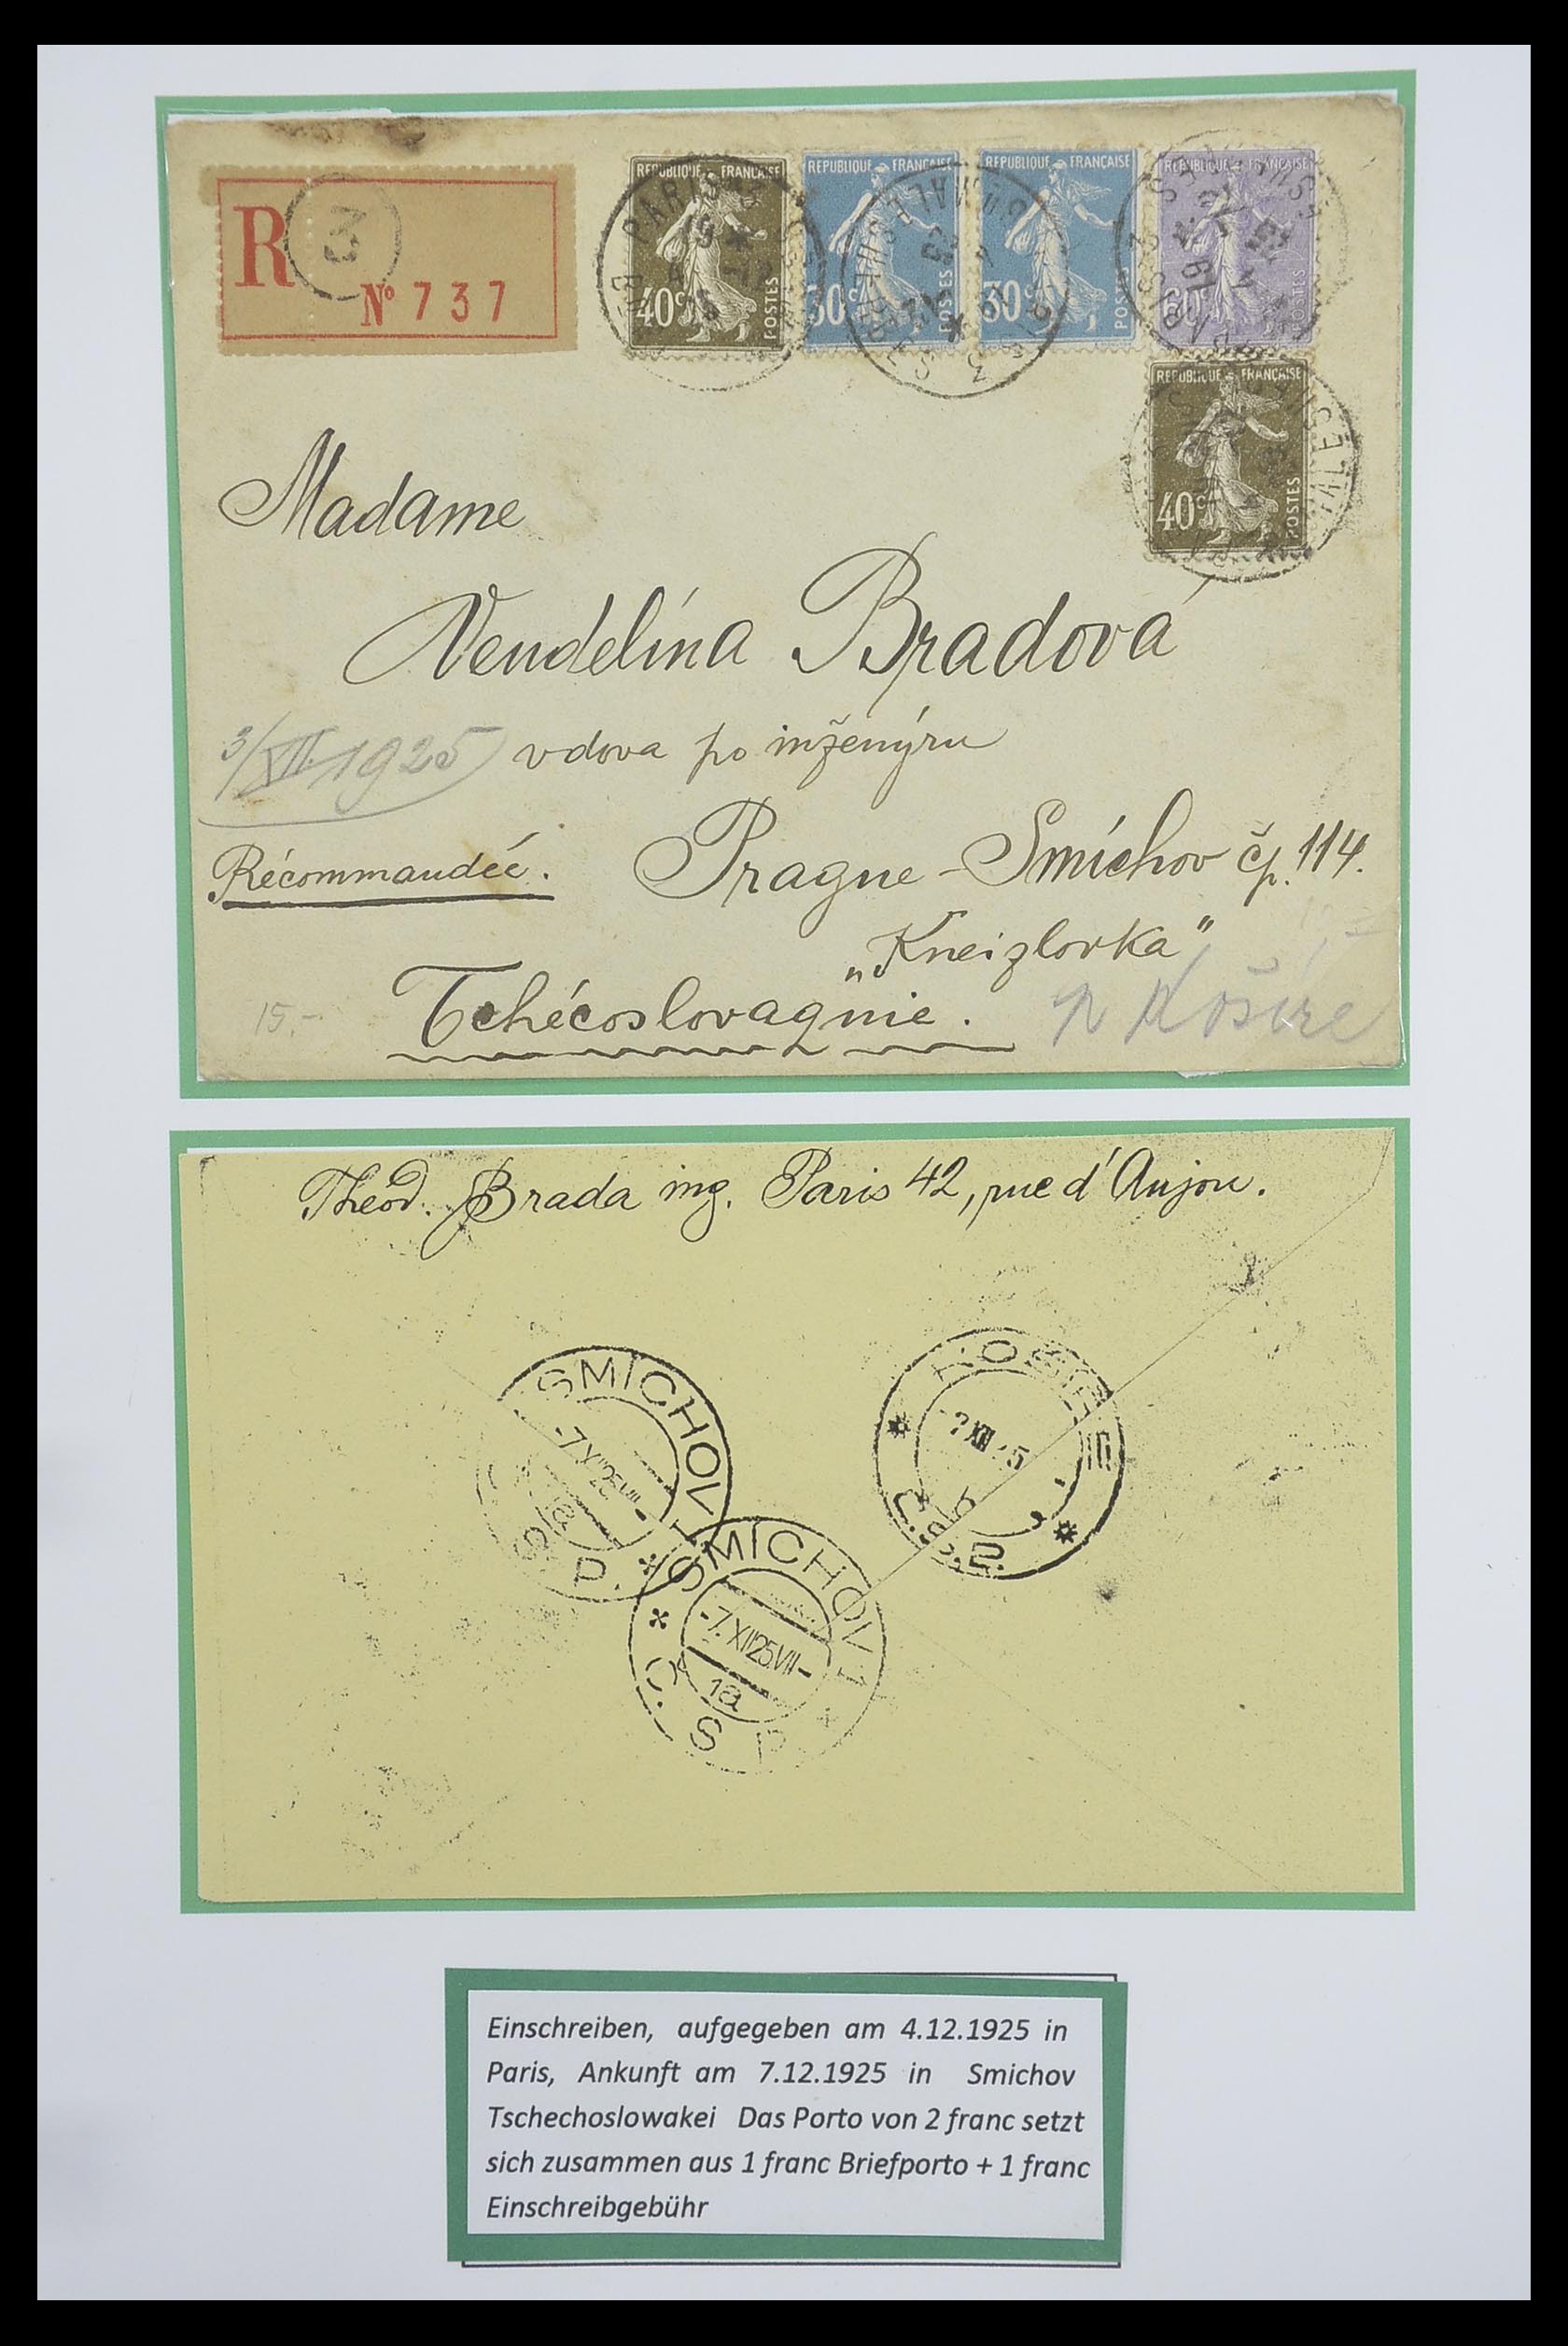 R
3
№ 737
REPUBLIQUE FRANÇAISE
40c POSTES
REPUBLIQUE FRANÇAISE
30c POSTES
REPUBLIQUE FRANÇAISE
30c POSTES
REPUBLIQUE FRANÇAISE
60c POSTES
REPUBLIQUE FRANÇAISE
40c POSTES
PARIS
Madame
Vendelína Bradová
3/XII. 1925
vdova po inženýru
Récommandée.
Prague - Smíchov čp. 114.
„Kneizlovka“
Tchécoslovaqnie.
p Košíře
15.-
Theod. Brada ing. Paris 42, rue d'Anjou.
SMÍCHOV 1
-7.XII25.VII-
1a
Č. S. P.
SMÍCHOV 1
-7.XII25.VII-
1a
Č. S. P.
KOŠÍŘE
Č.S.P.
Einschreiben, aufgegeben am 4.12.1925 in
Paris, Ankunft am 7.12.1925 in Smichov
Tschechoslowakei Das Porto von 2 franc setzt
sich zusammen aus 1 franc Briefporto + 1 franc
Einschreibgebühr